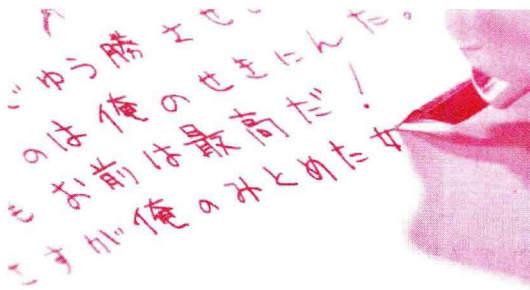 ごゆう勝させ
のは俺のせきにんだ。
もお前は最高だ！
さすが俺のみとめた女